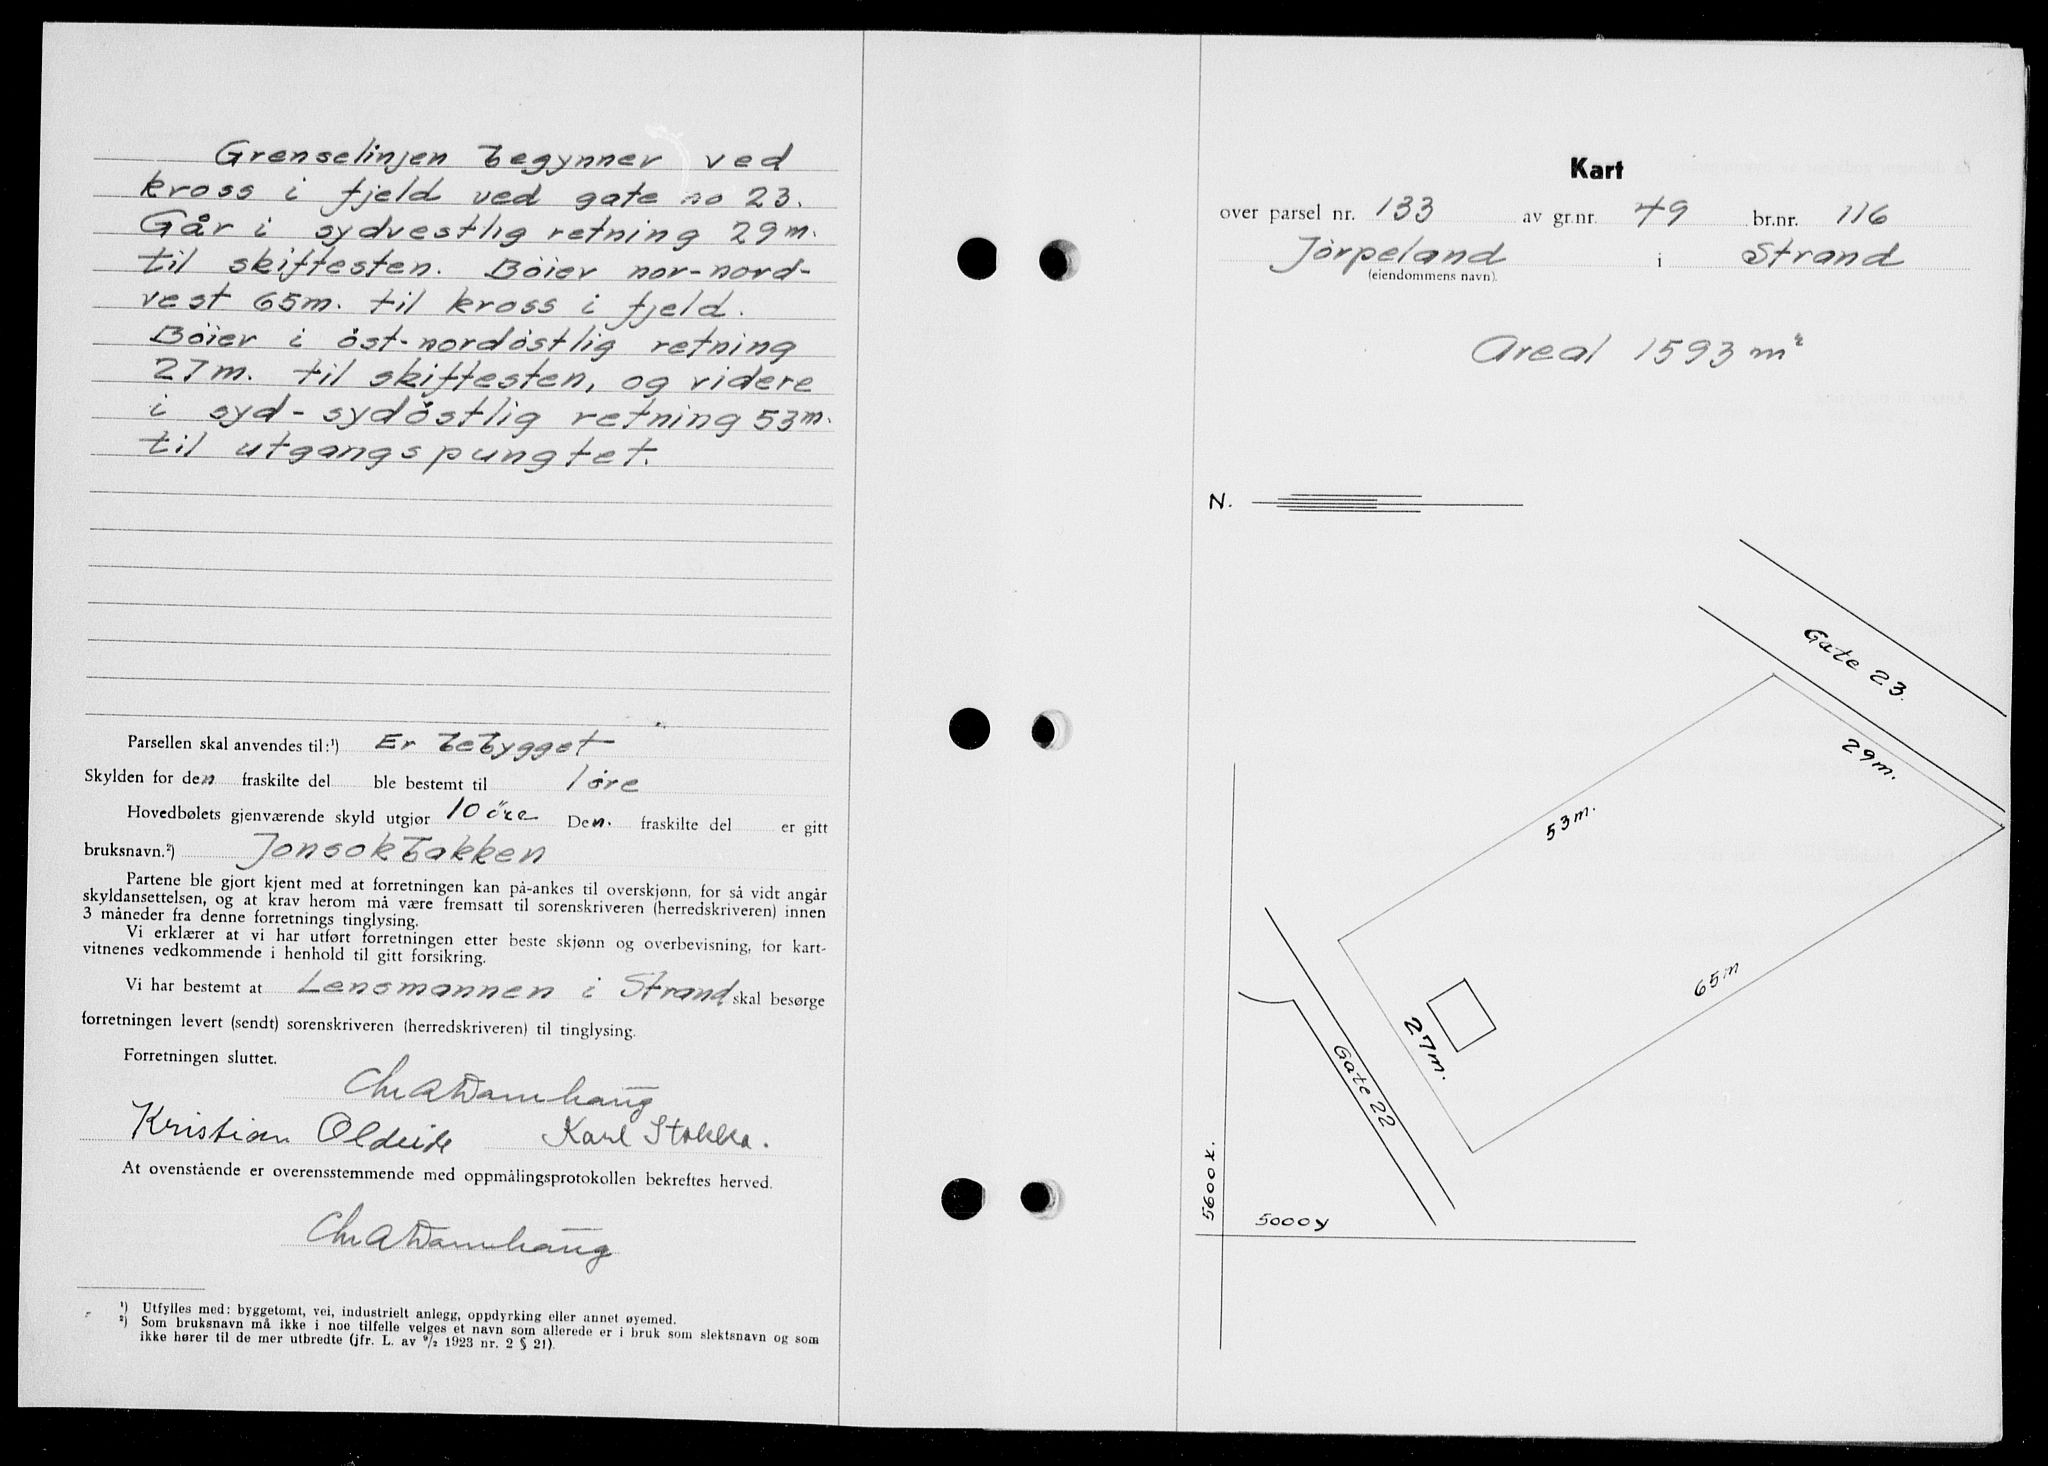 Grenselinjen begynner ved
kross i fjeld ved gate no 23.
Går i sydvestlig retning 29m.
til skiftesten. Böier nor-nord-
vest 65m. til kross i fjeld.
Böier i öst-nordöstlig retning
27m. til skiftesten, og videre
i syd-sydöstlig retning 53m.
til utgangspungtet.
Parsellen skal anvendes til:¹) Er bebygget
Skylden for den fraskilte del ble bestemt til 1 øre
Hovedbølets gjenværende skyld utgjør 10 öre Den. fraskilte del er gitt
bruksnavn.²) Jonsokbakken
Partene ble gjort kjent med at forretningen kan på-ankes til overskjønn, for så vidt angår
skyldansettelsen, og at krav herom må være fremsatt til sorenskriveren (herredskriveren) innen
3 måneder fra denne forretnings tinglysing.
Vi erklærer at vi har utført forretningen etter beste skjønn og overbevisning, for kart-
vitnenes vedkommende i henhold til gitt forsikring.
Vi har bestemt at Lensmannen i Strand skal besørge
forretningen levert (sendt) sorenskriveren (herredskriveren) til tinglysing.
Forretningen sluttet.
Kristian Karl Stokka.
At ovenstående er overensstemmende med oppmålingsprotokollen bekreftes herved.
¹) Utfylles med: byggetomt, vei, industrielt anlegg, oppdyrking eller annet øyemed.
²) Som bruksnavn må ikke i noe tilfelle velges et navn som allerede er i bruk som slektsnavn og som
ikke hører til de mer utbredte (jfr. L. av 9/2 1923 nr. 2 § 21).
Kart
over parsel nr. 133 av gr.nr. 49 br.nr. 116
Jörpeland i Strand
(eiendommens navn).
Areal 1593 m²
N.
Gate 23.
29m.
53m.
65m
27m.
Gate 22
5600 x.
5000y